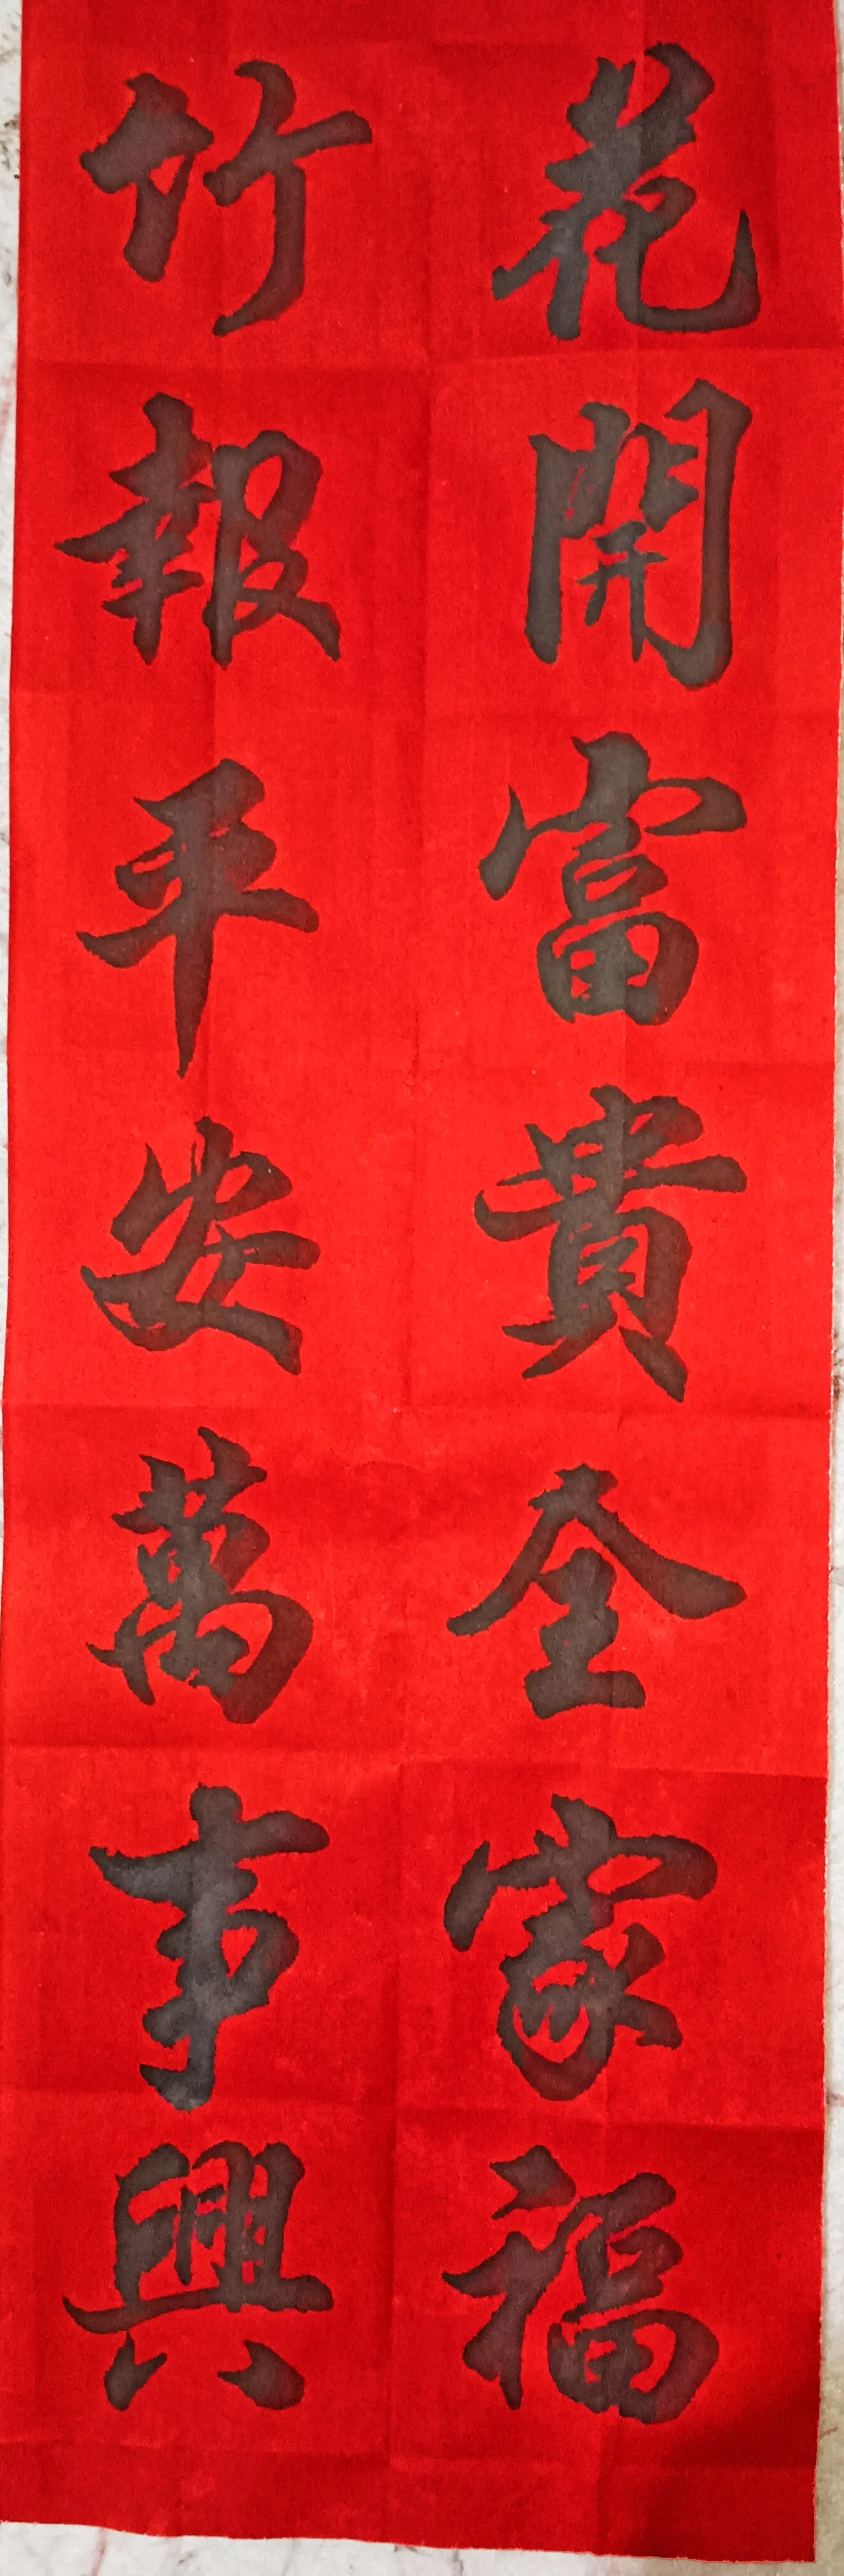 花開富貴全家福
竹報平安萬事興